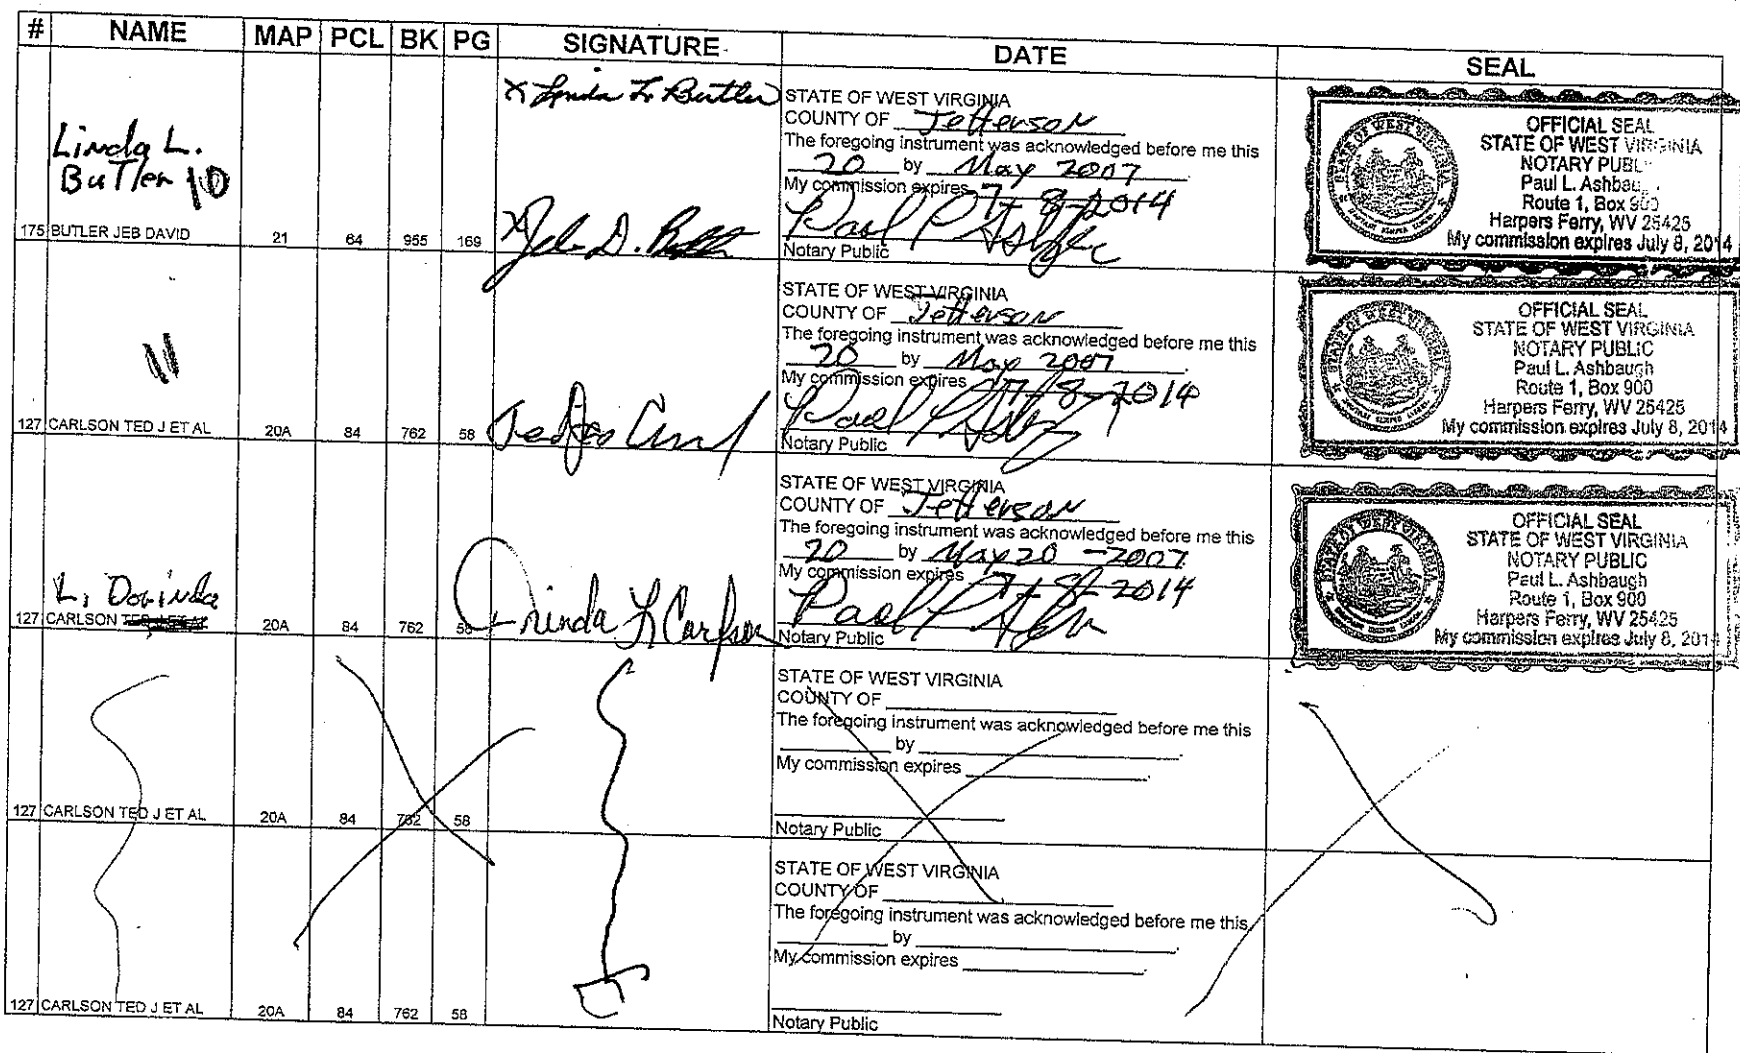 # NAME MAP PCL BK PG SIGNATURE DATE SEAL
Linda L.
Butler 10
175 BUTLER JEB DAVID 21 64 955 169
X Linda L. Butler
X Jeb D. Butler
STATE OF WEST VIRGINIA
COUNTY OF Jefferson
The foregoing instrument was acknowledged before me this
20 by May 2007
My commission expires 7-8-2014
Notary Public
OFFICIAL SEAL
STATE OF WEST VIRGINIA
NOTARY PUBL
Paul L. Ashbau
Route 1, Box 900
Harpers Ferry, WV 25425
My commission expires July 8, 2014
11
127 CARLSON TED J ET AL 20A 84 762 58
STATE OF WEST VIRGINIA
COUNTY OF Jefferson
The foregoing instrument was acknowledged before me this
20 by May 2007
My commission expires 7-8-2014
Notary Public
OFFICIAL SEAL
STATE OF WEST VIRGINIA
NOTARY PUBLIC
Paul L. Ashbaugh
Route 1, Box 900
Harpers Ferry, WV 25425
My commission expires July 8, 2014
L. Dorinda
127 CARLSON 20A 84 762 58
Drinda L Carlson
STATE OF WEST VIRGINIA
COUNTY OF Jefferson
The foregoing instrument was acknowledged before me this
20 by May 20 - 2007
My commission expires 7-8-2014
Notary Public
OFFICIAL SEAL
STATE OF WEST VIRGINIA
NOTARY PUBLIC
Paul L. Ashbaugh
Route 1, Box 900
Harpers Ferry, WV 25425
My commission expires July 8, 2014
127 CARLSON TED J ET AL 20A 84 762 58
STATE OF WEST VIRGINIA
COUNTY OF
The foregoing instrument was acknowledged before me this
by
My commission expires
Notary Public
127 CARLSON TED J ET AL 20A 84 762 58
STATE OF WEST VIRGINIA
COUNTY OF
The foregoing instrument was acknowledged before me this
by
My commission expires
Notary Public